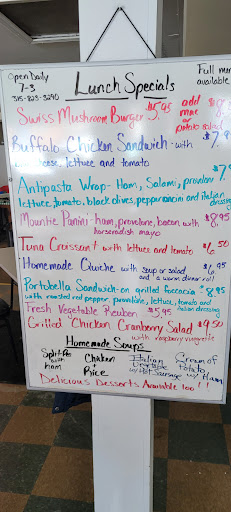 Open Daily
7-3
315-823-3290
Lunch Specials
Full
available
Swiss Mushroom Burger $5.95 add
mac
or
potato salad
Buffalo Chicken Sandwich - with
cheese, lettuce and tomato
Antipasta Wrap - Ham, Salami, provolone
lettuce, tomato, black olives, pepperoncini and italian
dressing
Mountie Panini - ham, provolone, bacon with $8.95
horseradish mayo
Tuna Croissant with lettuce and tomato $6.50
Homemade Quiche with soup or salad $6.95
and a warm dinner roll
Portobella Sandwich - on grilled foccacia $8.95
with roasted red pepper, provolone, lettuce, tomato and
italian dressing
Fresh Vegetable Reuben $5.95
Grilled Chicken Cranberry Salad $9.50
with raspberry vinegrette
Homemade Soups
Split Pea
with
Ham
Chicken
+
Rice
Italian
Vegetable
with Sausage
Cream of
Potato
w/ Ham
Delicious Desserts Available too!!